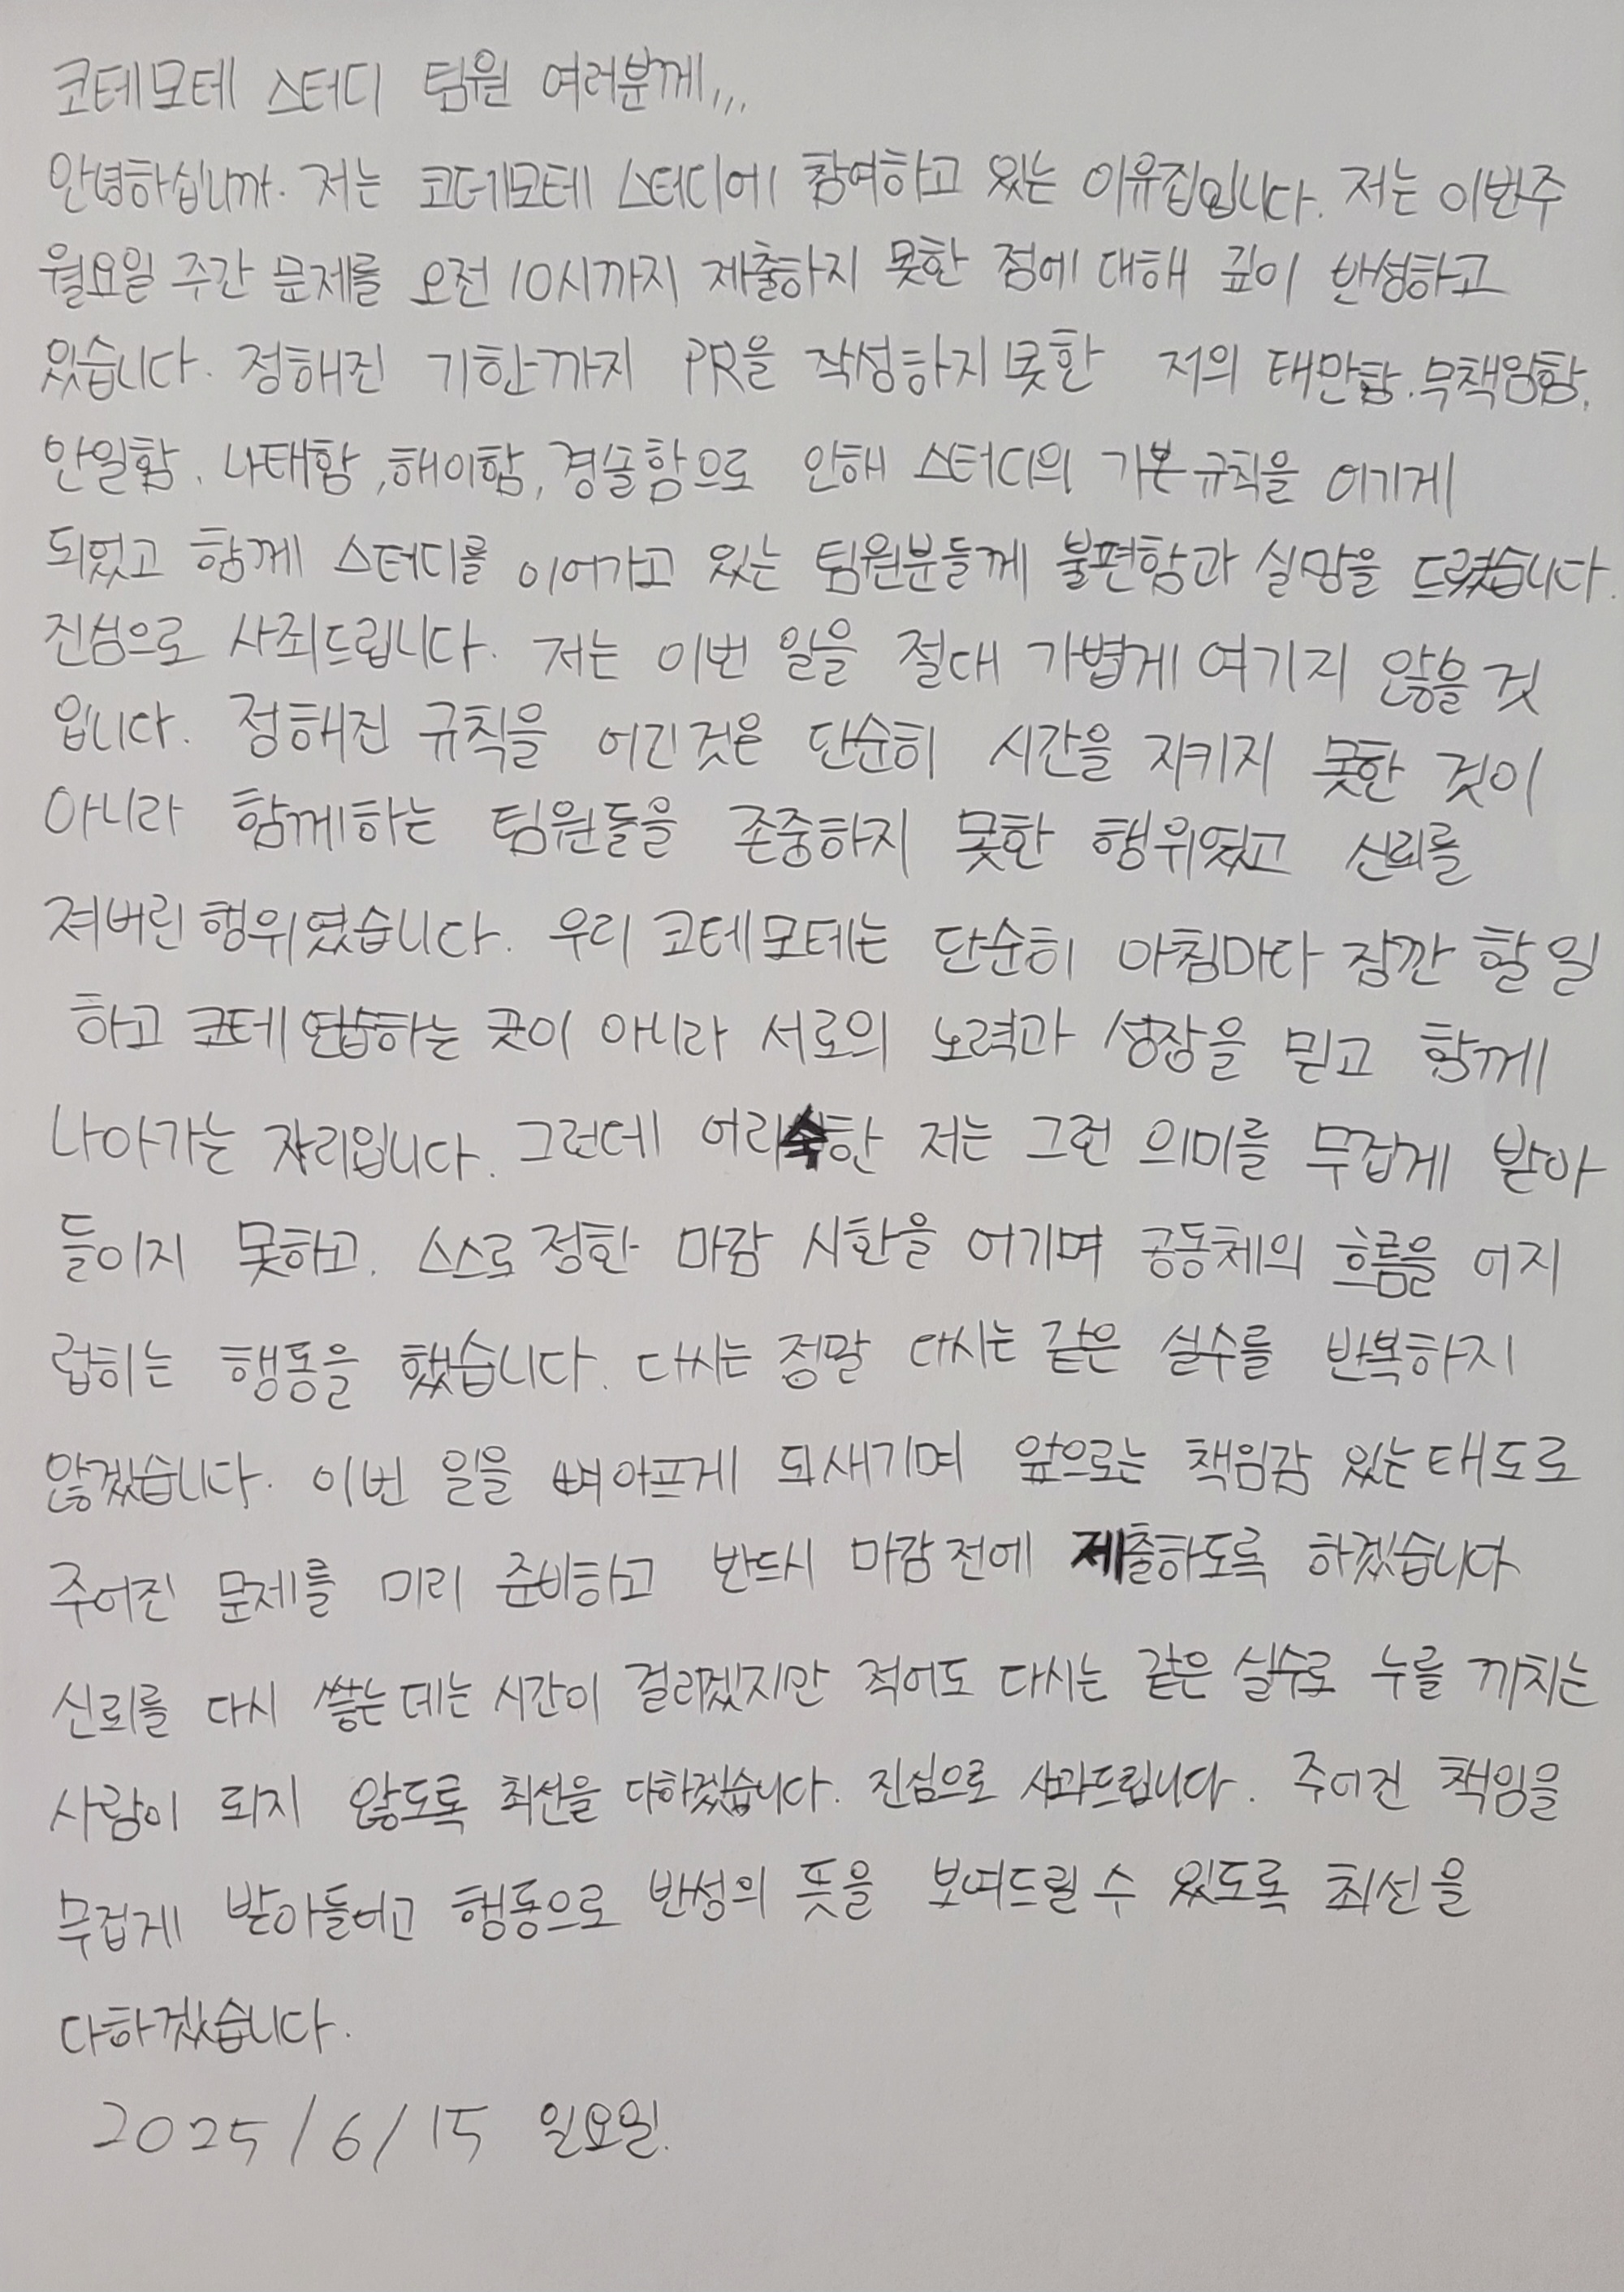 코테모테 스터디 팀원 여러분께,,,
안녕하십니까. 저는 코데모테 스터디에 참여하고 있는 이유집입니다. 저는 이번주
월요일 주간 문제를 오전 10시까지 제출하지 못한 점에 대해 깊이 반성하고
있습니다. 정해진 기한까지 PR을 작성하지 못한 저의 태만함. 무책임함,
안일함, 나태함, 해이함, 경솔함으로 인해 스터디의 기본 규칙을 어기게
되었고 함께 스터디를 이어가고 있는 팀원분들께 불편함과 실망을 드렸습니다.
진심으로 사죄드립니다. 저는 이번 일을 절대 가볍게 여기지 않을 것
입니다. 정해진 규칙을 어긴것은 단순히 시간을 지키지 못한 것이
아니라 함께하는 팀원들을 존중하지 못한 행위였고 신뢰를
져버린 행위였습니다. 우리 코테모테는 단순히 아침마다 잠깐 할일
하고 코테 연습하는 곳이 아니라 서로의 노력과 성장을 믿고 함께
나아가는 자리입니다. 그런데 어리숙한 저는 그런 의미를 무겁게 받아
들이지 못하고, 스스로 정한 마감 시한을 어기며 공동체의 흐름을 어지
럽히는 행동을 했습니다. 다시는 정말 다시는 같은 실수를 반복하지
않겠습니다. 이번 일을 뼈아프게 되새기며 앞으로는 책임감 있는 태도로
주어진 문제를 미리 준비하고 반드시 마감 전에 제출하도록 하겠습니다
신뢰를 다시 쌓는 데는 시간이 걸리겠지만 적어도 다시는 같은 실수로 누를 끼치는
사람이 되지 않도록 최선을 다하겠습니다. 진심으로 사과드립니다. 주어진 책임을
무겁게 받아들이고 행동으로 반성의 뜻을 보여드릴 수 있도록 최선을
다하겠습니다.
2025/6/15 일요일.